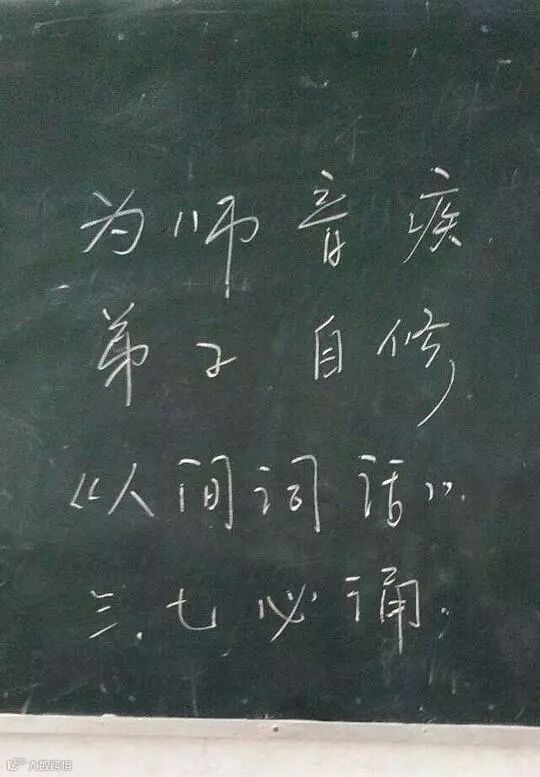 为师音疾
弟子自修
《人间词话》
三、七必诵。
大数跨境